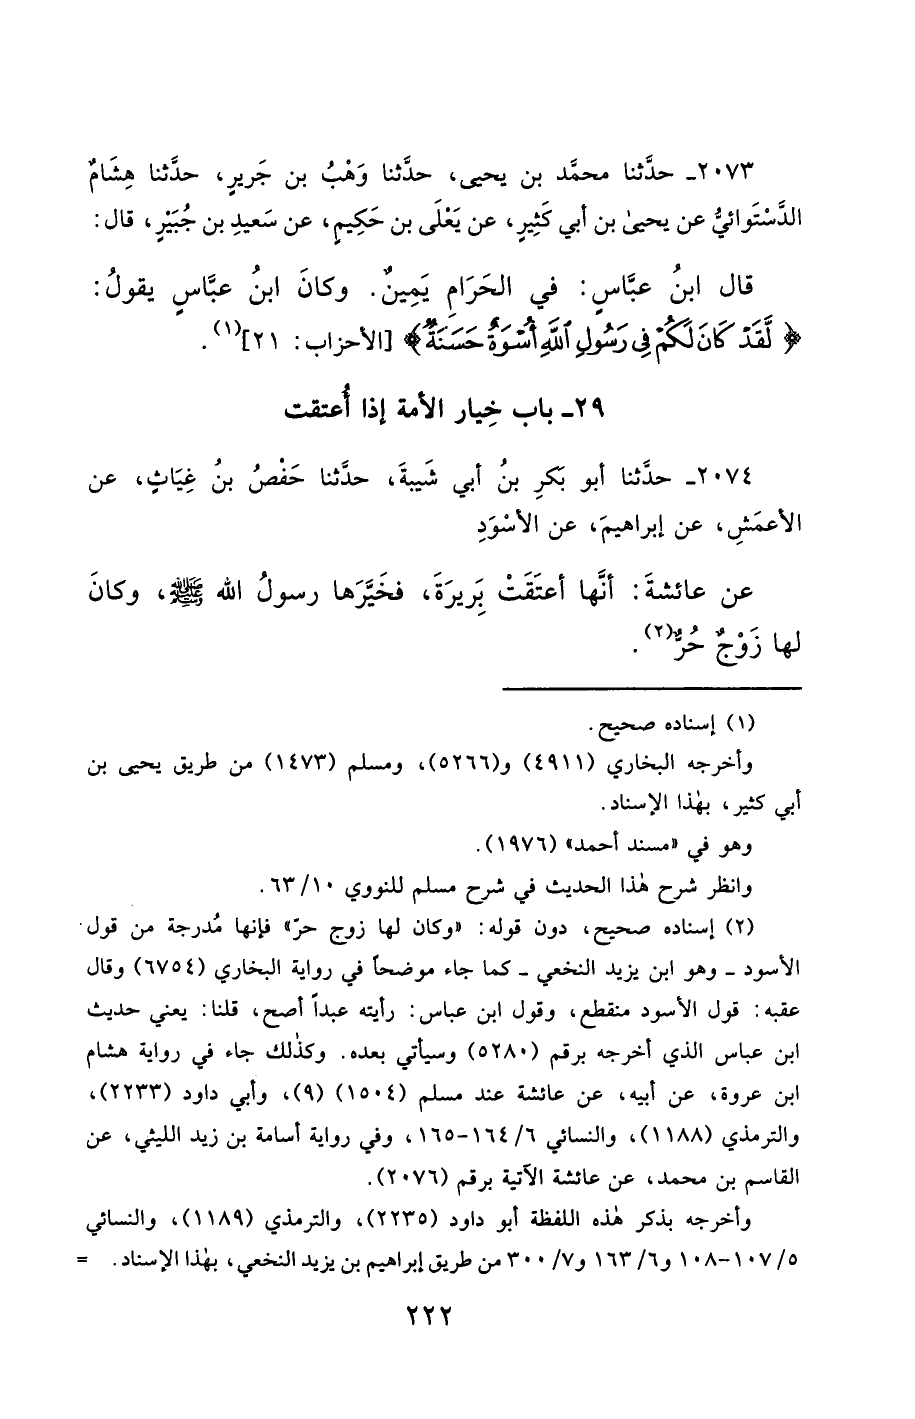 ٢٠٧٣ـ حدَّثنا محمَّد بن يحيى، حدَّثنا وَهْبُ بن جَريرٍ، حدَّثنا هِشَامٌ
الدَّسْتَوائيُّ عن يحيىٰ بن أبي كَثِيرٍ، عن يَعْلَى بن حَكِيمٍ، عن سَعيدِ بن جُبَيْرٍ، قال:
قال ابنُ عبَّاسٍ: في الحَرَامِ يَمِينٌ. وكانَ ابنُ عبَّاسٍ يقولُ:
﴿لَّقَدۡ كَانَ لَكُمۡ فِى رَسُولِ ٱللَّهِ أُسۡوَةٌ حَسَنَةٌ﴾ [الأحزاب: ٢١](١).
٢٩ـ باب خِيار الأمة إذا أُعتقت
٢٠٧٤ـ حدَّثنا أبو بَكرِ بنُ أبي شَيبةَ، حدَّثنا حَفْصُ بنُ غِيَاثٍ، عن
الأعمَشِ، عن إبراهيمَ، عن الأسْوَدِ
عن عائشةَ: أنَّها أعتَقَتْ بَرِيرَةَ، فخَيَّرَها رسولُ الله ﷺ، وكانَ
لها زَوْجٌ حُرٌّ(٢).
(١) إسناده صحيح.
وأخرجه البخاري (٤٩١١) و(٥٢٦٦)، ومسلم (١٤٧٣) من طريق يحيى بن
أبي كثير، بهٰذا الإسناد.
وهو في «مسند أحمد» (١٩٧٦).
وانظر شرح هٰذا الحديث في شرح مسلم للنووي ١٠/ ٦٣.
(٢) إسناده صحيح، دون قوله: «وكان لها زوج حرّ» فإنها مُدرجة من قول
الأسود ـ وهو ابن يزيد النخعي ـ كما جاء موضحاً في رواية البخاري (٦٧٥٤) وقال
عقبه: قول الأسود منقطع، وقول ابن عباس: رأيته عبداً أصح، قلنا: يعني حديث
ابن عباس الذي أخرجه برقم (٥٢٨٠) وسيأتي بعده. وكذٰلك جاء في رواية هشام
ابن عروة، عن أبيه، عن عائشة عند مسلم (١٥٠٤) (٩)، وأبي داود (٢٢٣٣)،
والترمذي (١١٨٨)، والنسائي ٦/ ١٦٤-١٦٥، وفي رواية أسامة بن زيد الليثي، عن
القاسم بن محمد، عن عائشة الآتية برقم (٢٠٧٦).
وأخرجه بذكر هٰذه اللفظة أبو داود (٢٢٣٥)، والترمذي (١١٨٩)، والنسائي
٥/ ١٠٧-١٠٨ و٦/ ١٦٣ و٧/ ٣٠٠ من طريق إبراهيم بن يزيد النخعي، بهٰذا الإسناد. =
٢٢٢